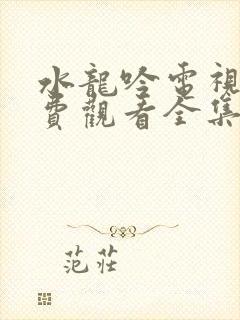 水龍吟電視
費觀看全集
范莊